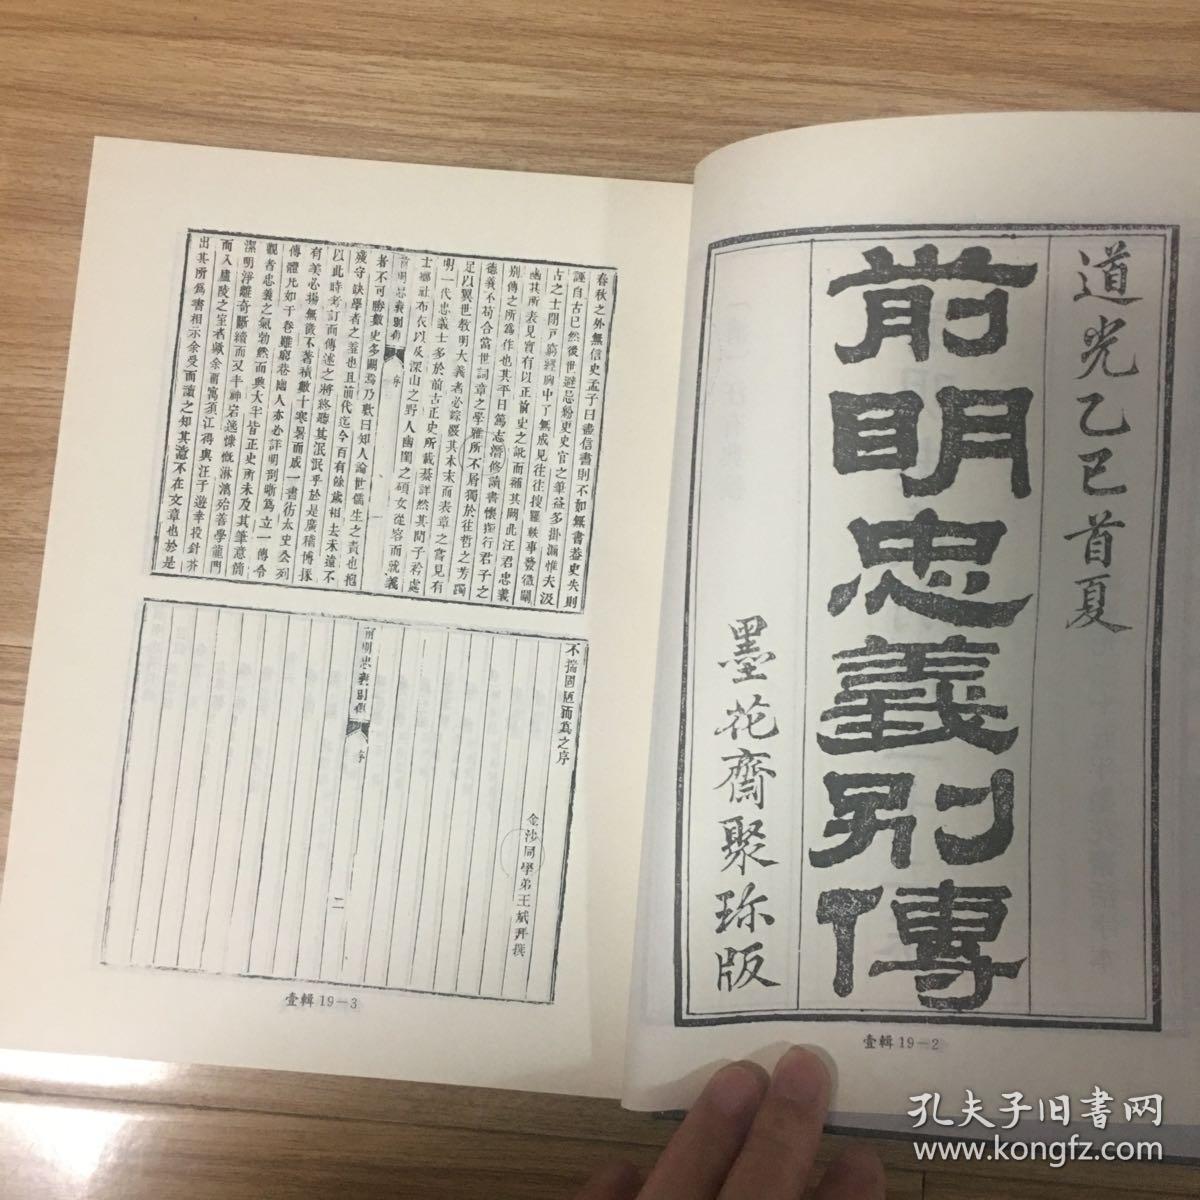 道光乙巳首夏
前明忠義別傳
墨花齋聚珍版
壹輯 19－2
春秋之外無信史孟子曰盡信書則不如無書蓋史失則
誣自古已然後世避忌紛更史官之筆益多掛漏惟夫汲
古之士閉戶窮經胸中了無成見往往搜羅軼事發微闡
幽其所表見實有以正前史之訛而補其闕此汪君忠義
別傳之所為作也其平日篤志潛修讀書懷獨行君子之
德義不苟合當世詞章之學雅所不屑獨於往哲之芳躅
足以翼世教明大義者必綜覈其本末而表章之嘗見有
明一代忠義士多於前古正史所載綦詳然其間子若處
士鄉社布衣以及深山之野人幽閨之碩女從容而就義
前明忠義別傳　序
者不可勝數史多闕焉乃歎曰知人論世儒生之責也抱
殘守缺學者之羞也且前代迄今百有餘歲相去未遠不
以此時考訂而傳述之將終聽其泯泯乎於是廣稽博採
有美必揚無微不著積數十寒暑而成一書彷太史公列
傳體凡如干卷雖窮巷幽人亦必詳明剴晰為立一傳令
觀者忠義之氣勃然而興大半皆正史所未及其筆意簡
潔明淨離奇斷續而又丰神岩逸慷慨淋漓殆善學龍門
而入廬陵之室者歟余需寓須江得與汪子遊幸投針芥
出其所為書相示余受而讀之知其滬不在文章也於是
不揣固陋而為之序
金沙同學弟王斌拜撰
前明忠義別傳　序
二
壹輯 19－3
孔夫子旧書网
www.kongfz.com